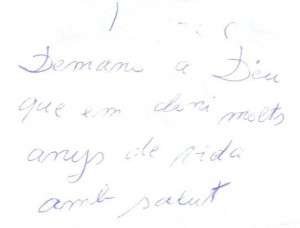 Demano a Déu
que em doni molts
anys de vida
amb salut